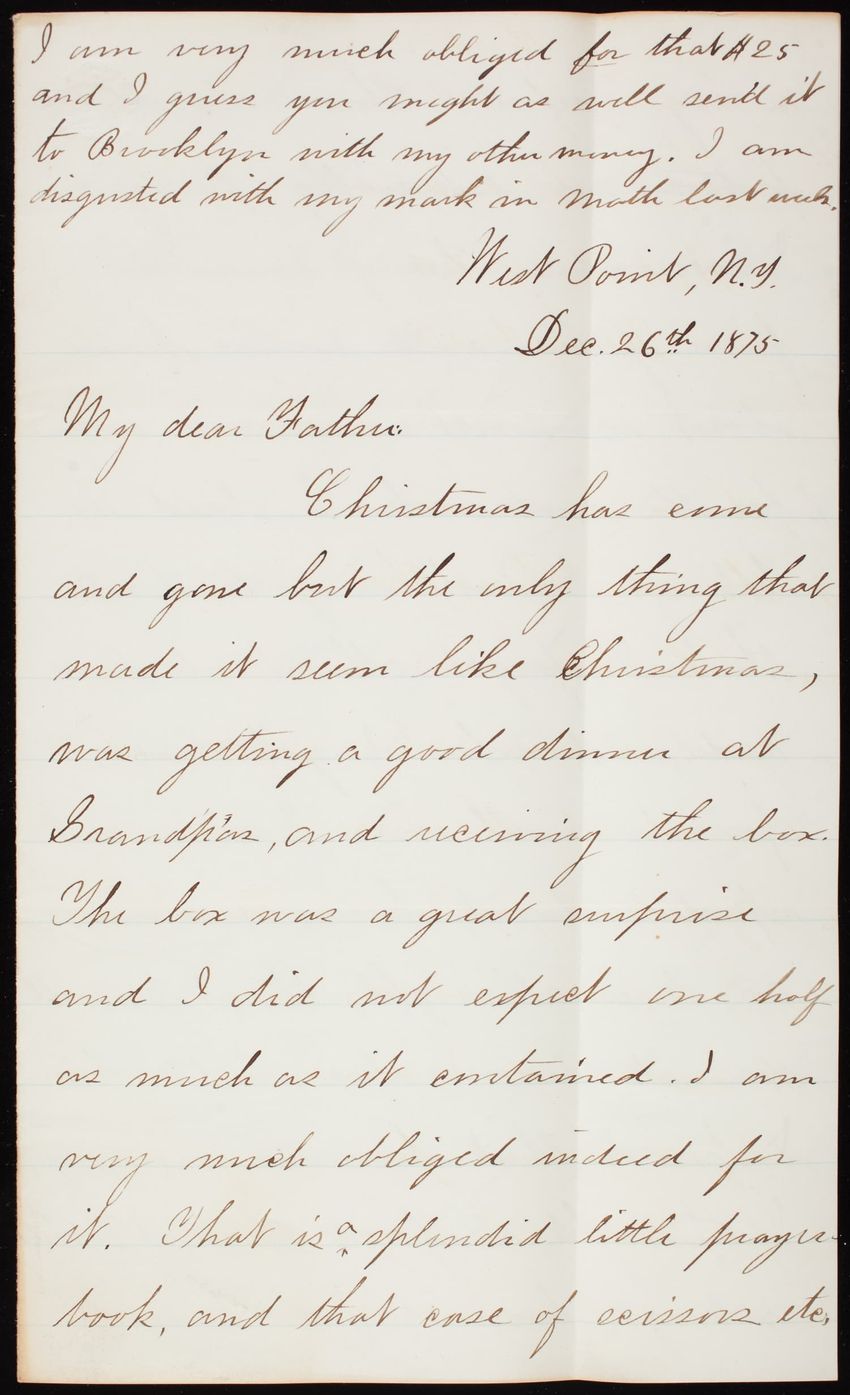 I am very much obliged for that $25
and I guess you might as well send it
to Brooklyn with my other money. I am
disgusted with my mark in math last week.
West Point, N.Y.
Dec. 26th 1875
My dear Father:
Christmas has come
and gone but the only thing that
made it seem like Christmas,
was getting a good dinner at
Grandpa's, and receiving the box.
The box was a great surprise
and I did not expect one half
as much as it contained. I am
very much obliged indeed for
it. That is a splendid little prayer-
book, and that case of scissors etc.